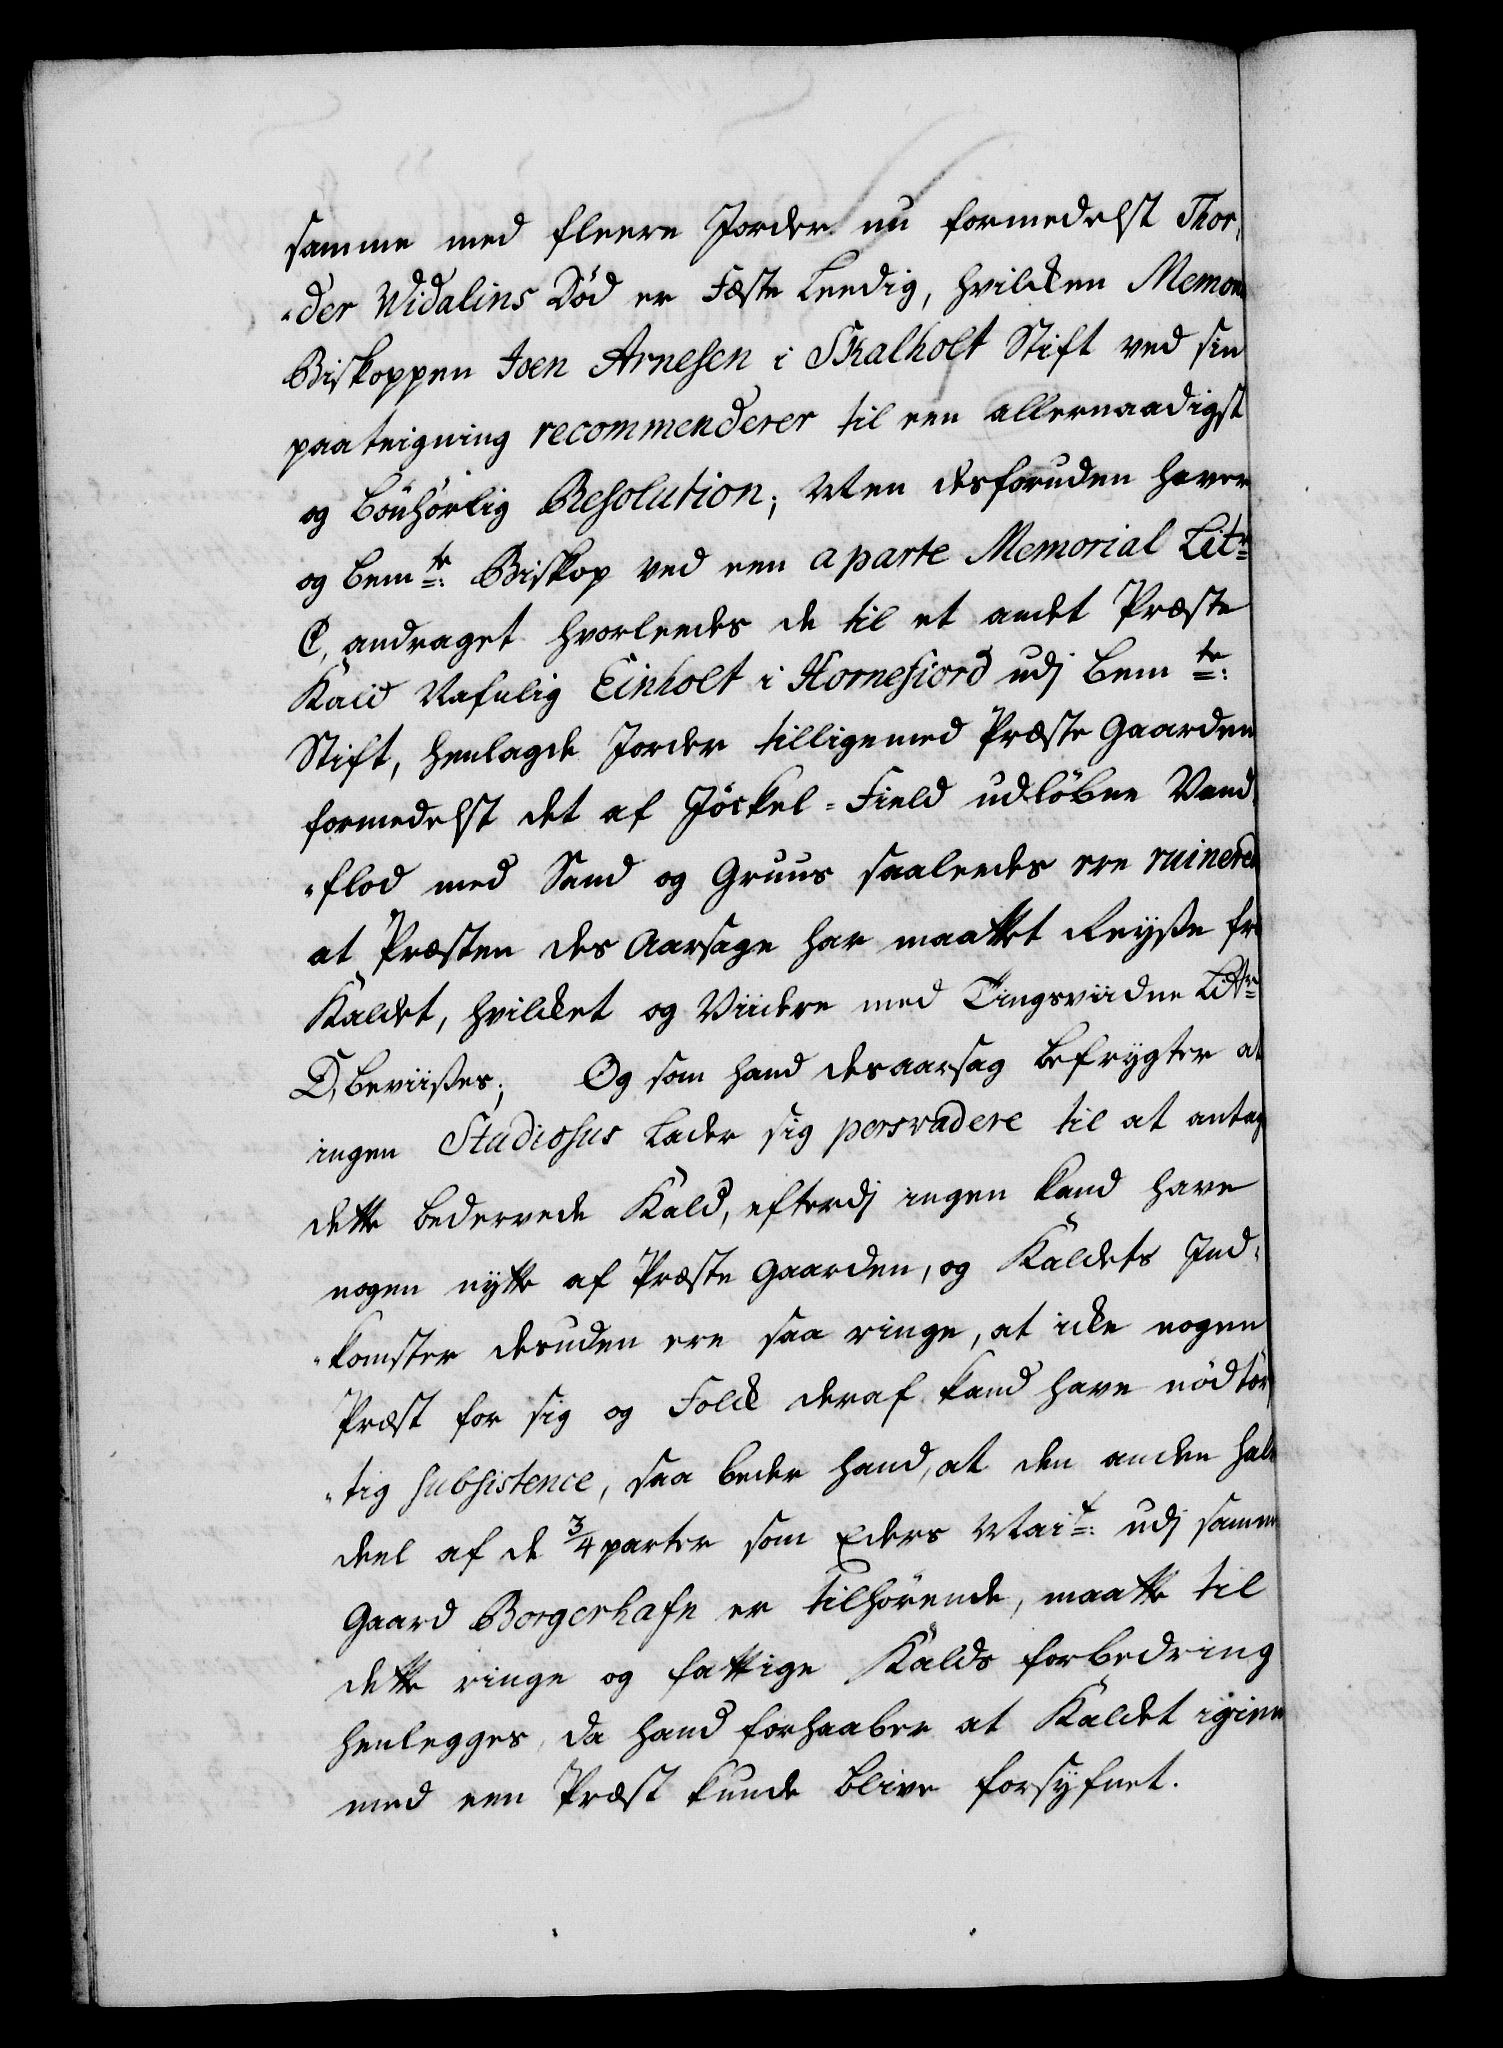 samme med fleere Jorder nu formedelst Thor,
„der Widalins Død er Fæste Leedig, hvilcken Memori
Biskoppen Joen Arnesen i Skalholt Stift ved sin
paateigning recommenderer til een allernaadigst
og bönhörlig Resolution; Men desforuden haver
og bemte: Biskop ved een aparte Memorial Litr
C, andraget hvorleedes de til et andet Præste
Kald Nafnlig Einholt i Hornefiord udj bemte:
Stift, henlagde Jorder tilligemed Præste Gaarden
formedelst det af Jöckel-Field udløbne Vand
„flod med Sand og Gruus saaleedes ere ruinered
at Præsten des Aarsage har maattet Reyse fra
Kaldet, hvilcket og Viidere med Tingsviidne Littr
D, beviises; Og som hand desaarsag befrygter at
ingen Studiosus Lader sig persvadere til at antag
dette bedervede Kald, efterdj ingen kand have
nogen nytte af Præste Gaarden, og Kaldets Ind,
„komster desuden ere saa ringe, at icke nogen
Præst for sig og Folck deraf kand have nödtör
„tig subsistence, saa beder hand, at den anden halv
deel af de 3/4 parter som Eders Mait: udj samme
Gaard Borgerhafn er tilhörende, maatte til
dette ringe og fattige Kalds forbedring
henlegges, da hand forhaaber at Kaldet igien
med een Præst kunde blive forsÿfnet.